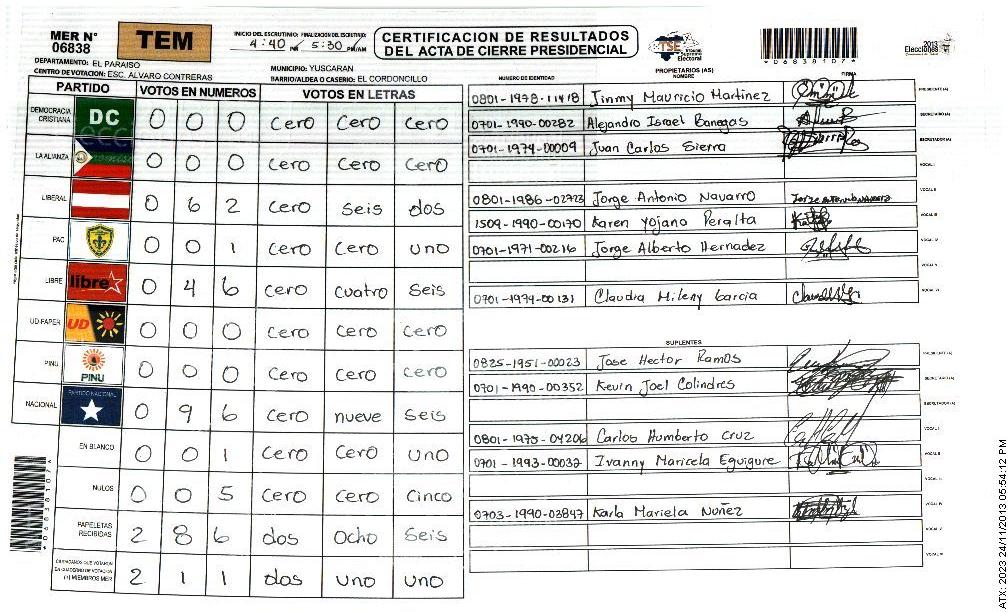 MER N° 06838
TEM
INICIO DEL ESCRUTINIO: FINALIZACION DEL ESCRUTINIO:
4:40 PM / 5:30 PM/AM
CERTIFICACION DE RESULTADOS
DEL ACTA DE CIERRE PRESIDENCIAL
TSE Tribunal Supremo Electoral
*06838107*
2013
Elecciones
DEPARTAMENTO: EL PARAISO
MUNICIPIO: YUSCARAN
CENTRO DE VOTACION: ESC. ALVARO CONTRERAS
BARRIO/ALDEA O CASERIO: EL CORDONCILLO
PARTIDO VOTOS EN NUMEROS VOTOS EN LETRAS
DEMOCRACIA CRISTIANA DC 0 0 0 Cero Cero Cero
LA ALIANZA 0 0 0 Cero Cero Cero
LIBERAL 0 6 2 Cero Seis dos
PAC 0 0 1 Cero Cero uno
LIBRE libre 0 4 6 Cero Cuatro Seis
UD-FAPER UD 0 0 0 Cero Cero Cero
PINU PINU 0 0 0 Cero Cero Cero
NACIONAL PARTIDO NACIONAL 0 9 6 Cero nueve Seis
EN BLANCO 0 0 1 Cero Cero Uno
NULOS 0 0 5 Cero Cero Cinco
PAPELETAS RECIBIDAS 2 8 6 dos Ocho Seis
CIUDADANOS QUE VOTARON EN CUADERNO DE VOTACION (+) MIEMBROS MER 2 1 1 dos uno Uno
NUMERO DE IDENTIDAD PROPIETARIOS (AS) NOMBRE FIRMA
0801-1978-11418 Jinmy Mauricio Martinez PRESIDENTE (A)
0701-1990-00282 Alejandro Israel Banegas SECRETARIO (A)
0701-1974-00009 Juan Carlos Sierra ESCRUTADOR (A)
VOCAL I
0801-1986-02723 Jorge Antonio Navarro VOCAL II
1509-1990-00170 Karen Yojano Peralta VOCAL III
0701-1971-00216 Jorge Alberto Hernadez VOCAL IV
VOCAL V
0701-1974-00131 Claudia Mileny Garcia VOCAL VI
SUPLENTES
0825-1951-00023 Jose Hector Ramos PRESIDENTE (A)
0701-1990-00352 Kevin Joel Colindres SECRETARIO (A)
ESCRUTADOR (A)
0801-1975-04206 Carlos Humberto Cruz VOCAL I
0701-1993-00032 Ivanny Maricela Eguigure VOCAL II
VOCAL III
0703-1990-03897 Karla Mariela Nuñez VOCAL IV
VOCAL V
VOCAL VI
*06838107*
ATX: 2023 24/11/2013 05:54:12 PM